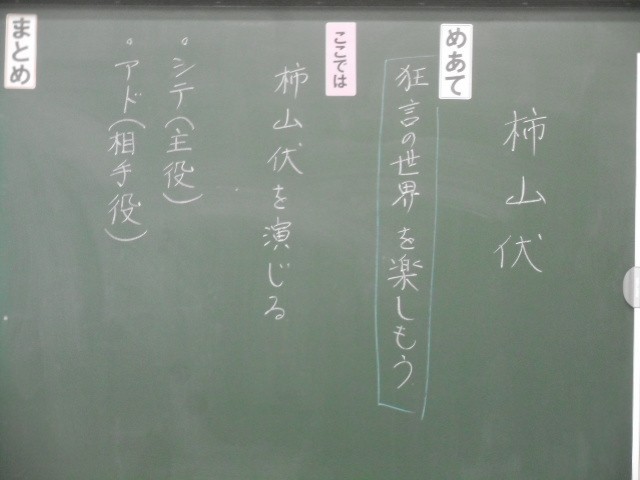 柿山伏
めあて
狂言の世界を楽しもう
ここでは
柿山伏を演じる
・シテ（主役）
・アド（相手役）
まとめ